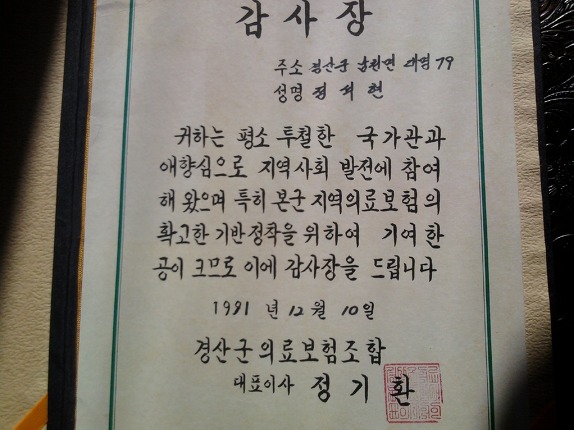 감사장
주소 경산군 남천면 대명 79
성명 정 저 현
귀하는 평소 투철한 국가관과
애향심으로 지역사회 발전에 참여
해 왔으며 특히 본군 지역의료보험의
확고한 기반정착을 위하여 기여한
공이 크므로 이에 감사장을 드립니다
1991 년 12 월 10 일
경산군의료보험조합
대표이사 정 기 환